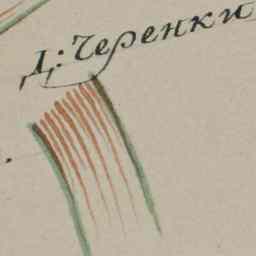 Д: Черенки